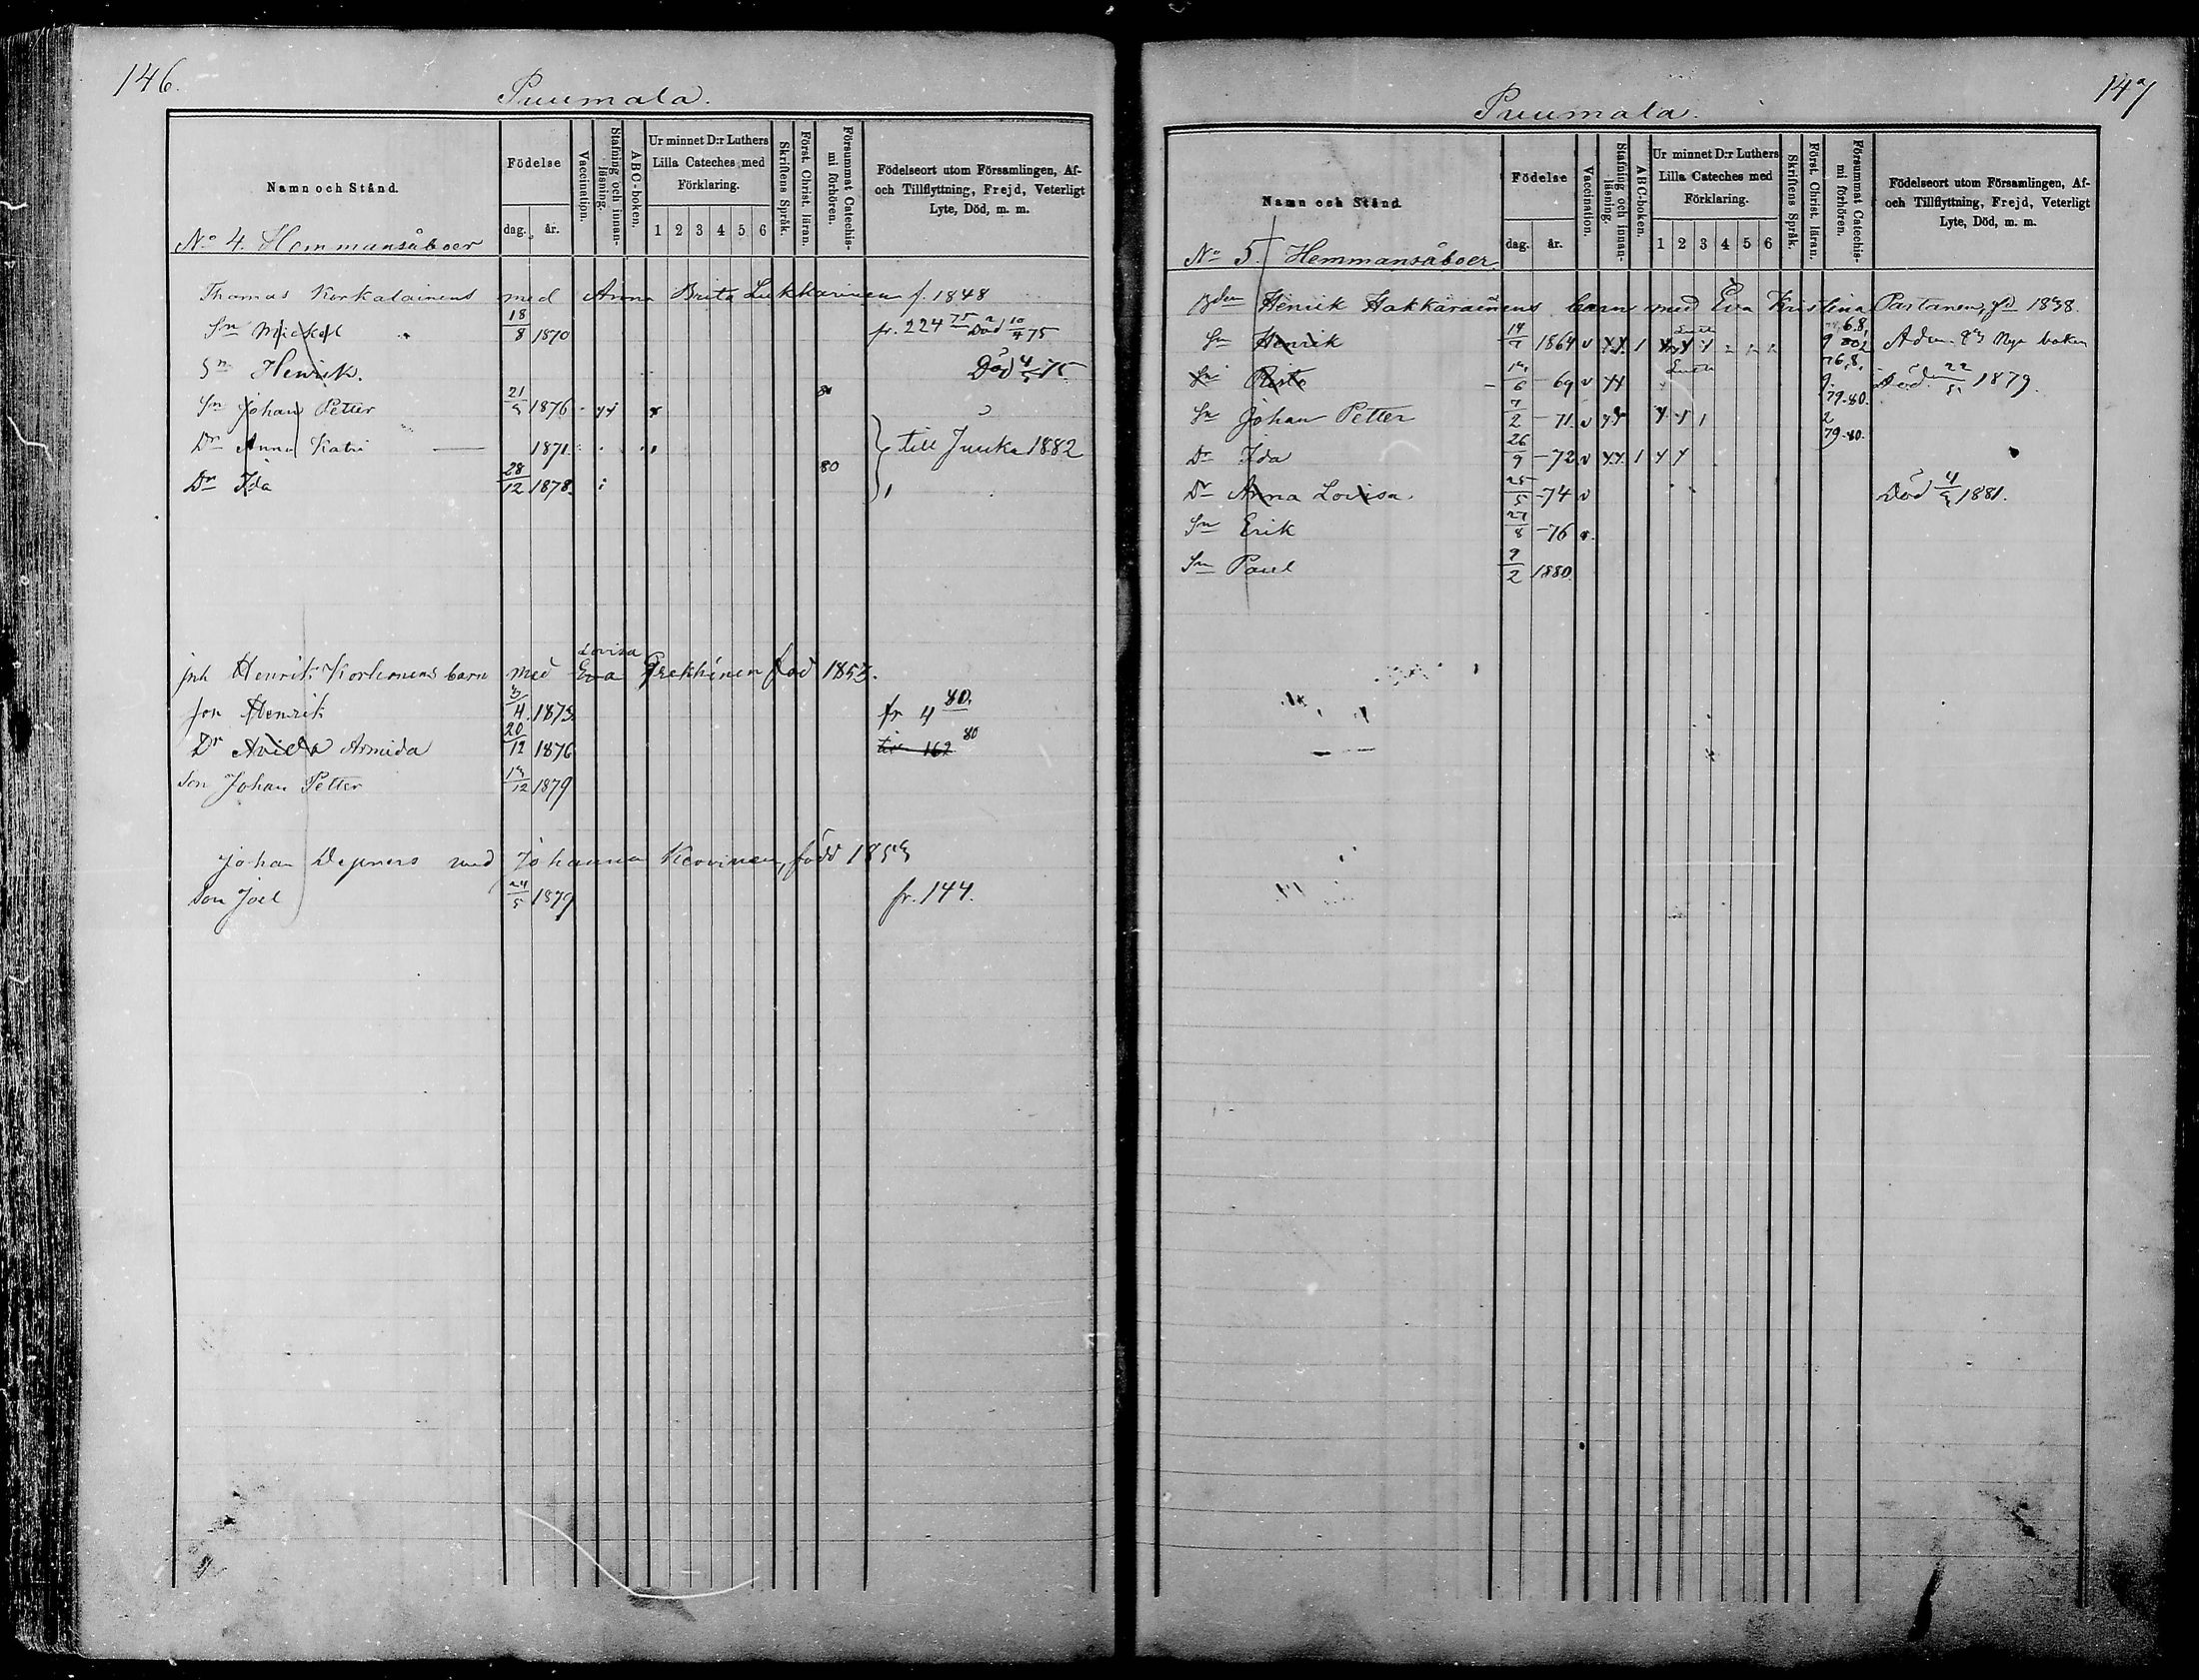 146.
Puumala.
Namn och Stånd.
Födelse
dag. år.
Vaccination.
Stafning och innan-läsning.
ABC-boken.
Ur minnet D:r Luthers Lilla Cateches med Förklaring.
1 2 3 4 5 6
Skriftens Språk.
Först. Christ. läran.
Försummat Catechis-mi förhören.
Födelseort utom Församlingen, Af- och Tillflyttning, Frejd, Veterligt Lyte, Död, m. m.
No 4. Hemmansåboer
Thomas Korkalainens med Anna Brita Lukkarinen f. 1848
Sn Mickel 18/8 1870 fr. 224 75 Död 10/4 75
Sn Henrik. Död 75
Sn Johan Petter 21/9 1876
Dr Anna Katri 1871 till Juuka 1882
Dr Ida 28/12 1878 80
Henrik Korhonens barn med Eva Lovisa född 1853.
son Henrik 3/4 1873 fr 4 80.
Dr Avida Armida 20/12 1876 162 80
Son Johan Petter 12 1879
Johan med Johanna född
Son Joel 24/5 1879 fr. 144.
147
Puumala.
Namn och Stånd
Födelse
dag. år.
Vaccination.
Stafning och innan-läsning.
ABC-boken.
Ur minnet D:r Luthers Lilla Cateches med Förklaring.
1 2 3 4 5 6
Skriftens Språk.
Först. Christ. läran.
Försummat Catechis-mi förhören.
Födelseort utom Församlingen, Af- och Tillflyttning, Frejd, Veterligt Lyte, Död, m. m.
No 5. Hemmansåboer.
Henrik Hakkarainens barn med Eva Kristina Partanen, 1838.
Sn Henrik 1864 Nya boken
Sn 69 Död 22/5 1879.
Sn Johan Petter 7/2 71 79-80.
Dr Ida 26/9 72 79-80.
Dr Anna Lovisa. 25/5 74 Död 1881.
Sn Erik 27/8 76
Sn Paul 9/2 1880